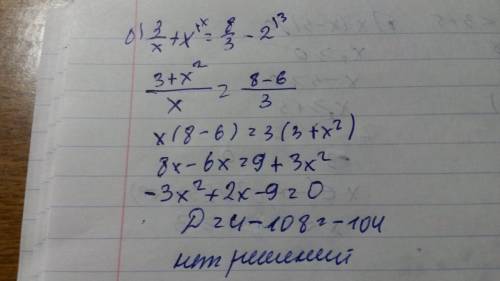 б) 3/x + x^{1x} = 8/3 - 2^{13}
(3+x²)/x = (8-6)/3
x(8-6)=3(3+x²)
8x-6x=9+3x²
-3x²+2x-9=0
D=4-108=-104
нет решений